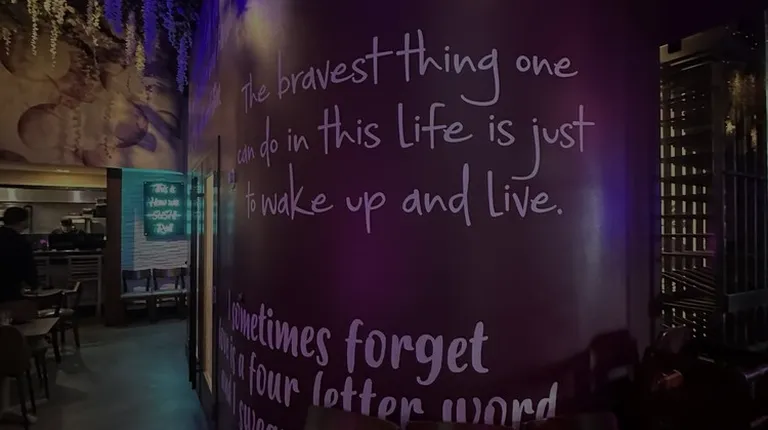 The bravest thing one
can do in this life is just
to wake up and live.
I sometimes forget
love is a four letter word
and I swear
This is
How we
SUSHI
Roll